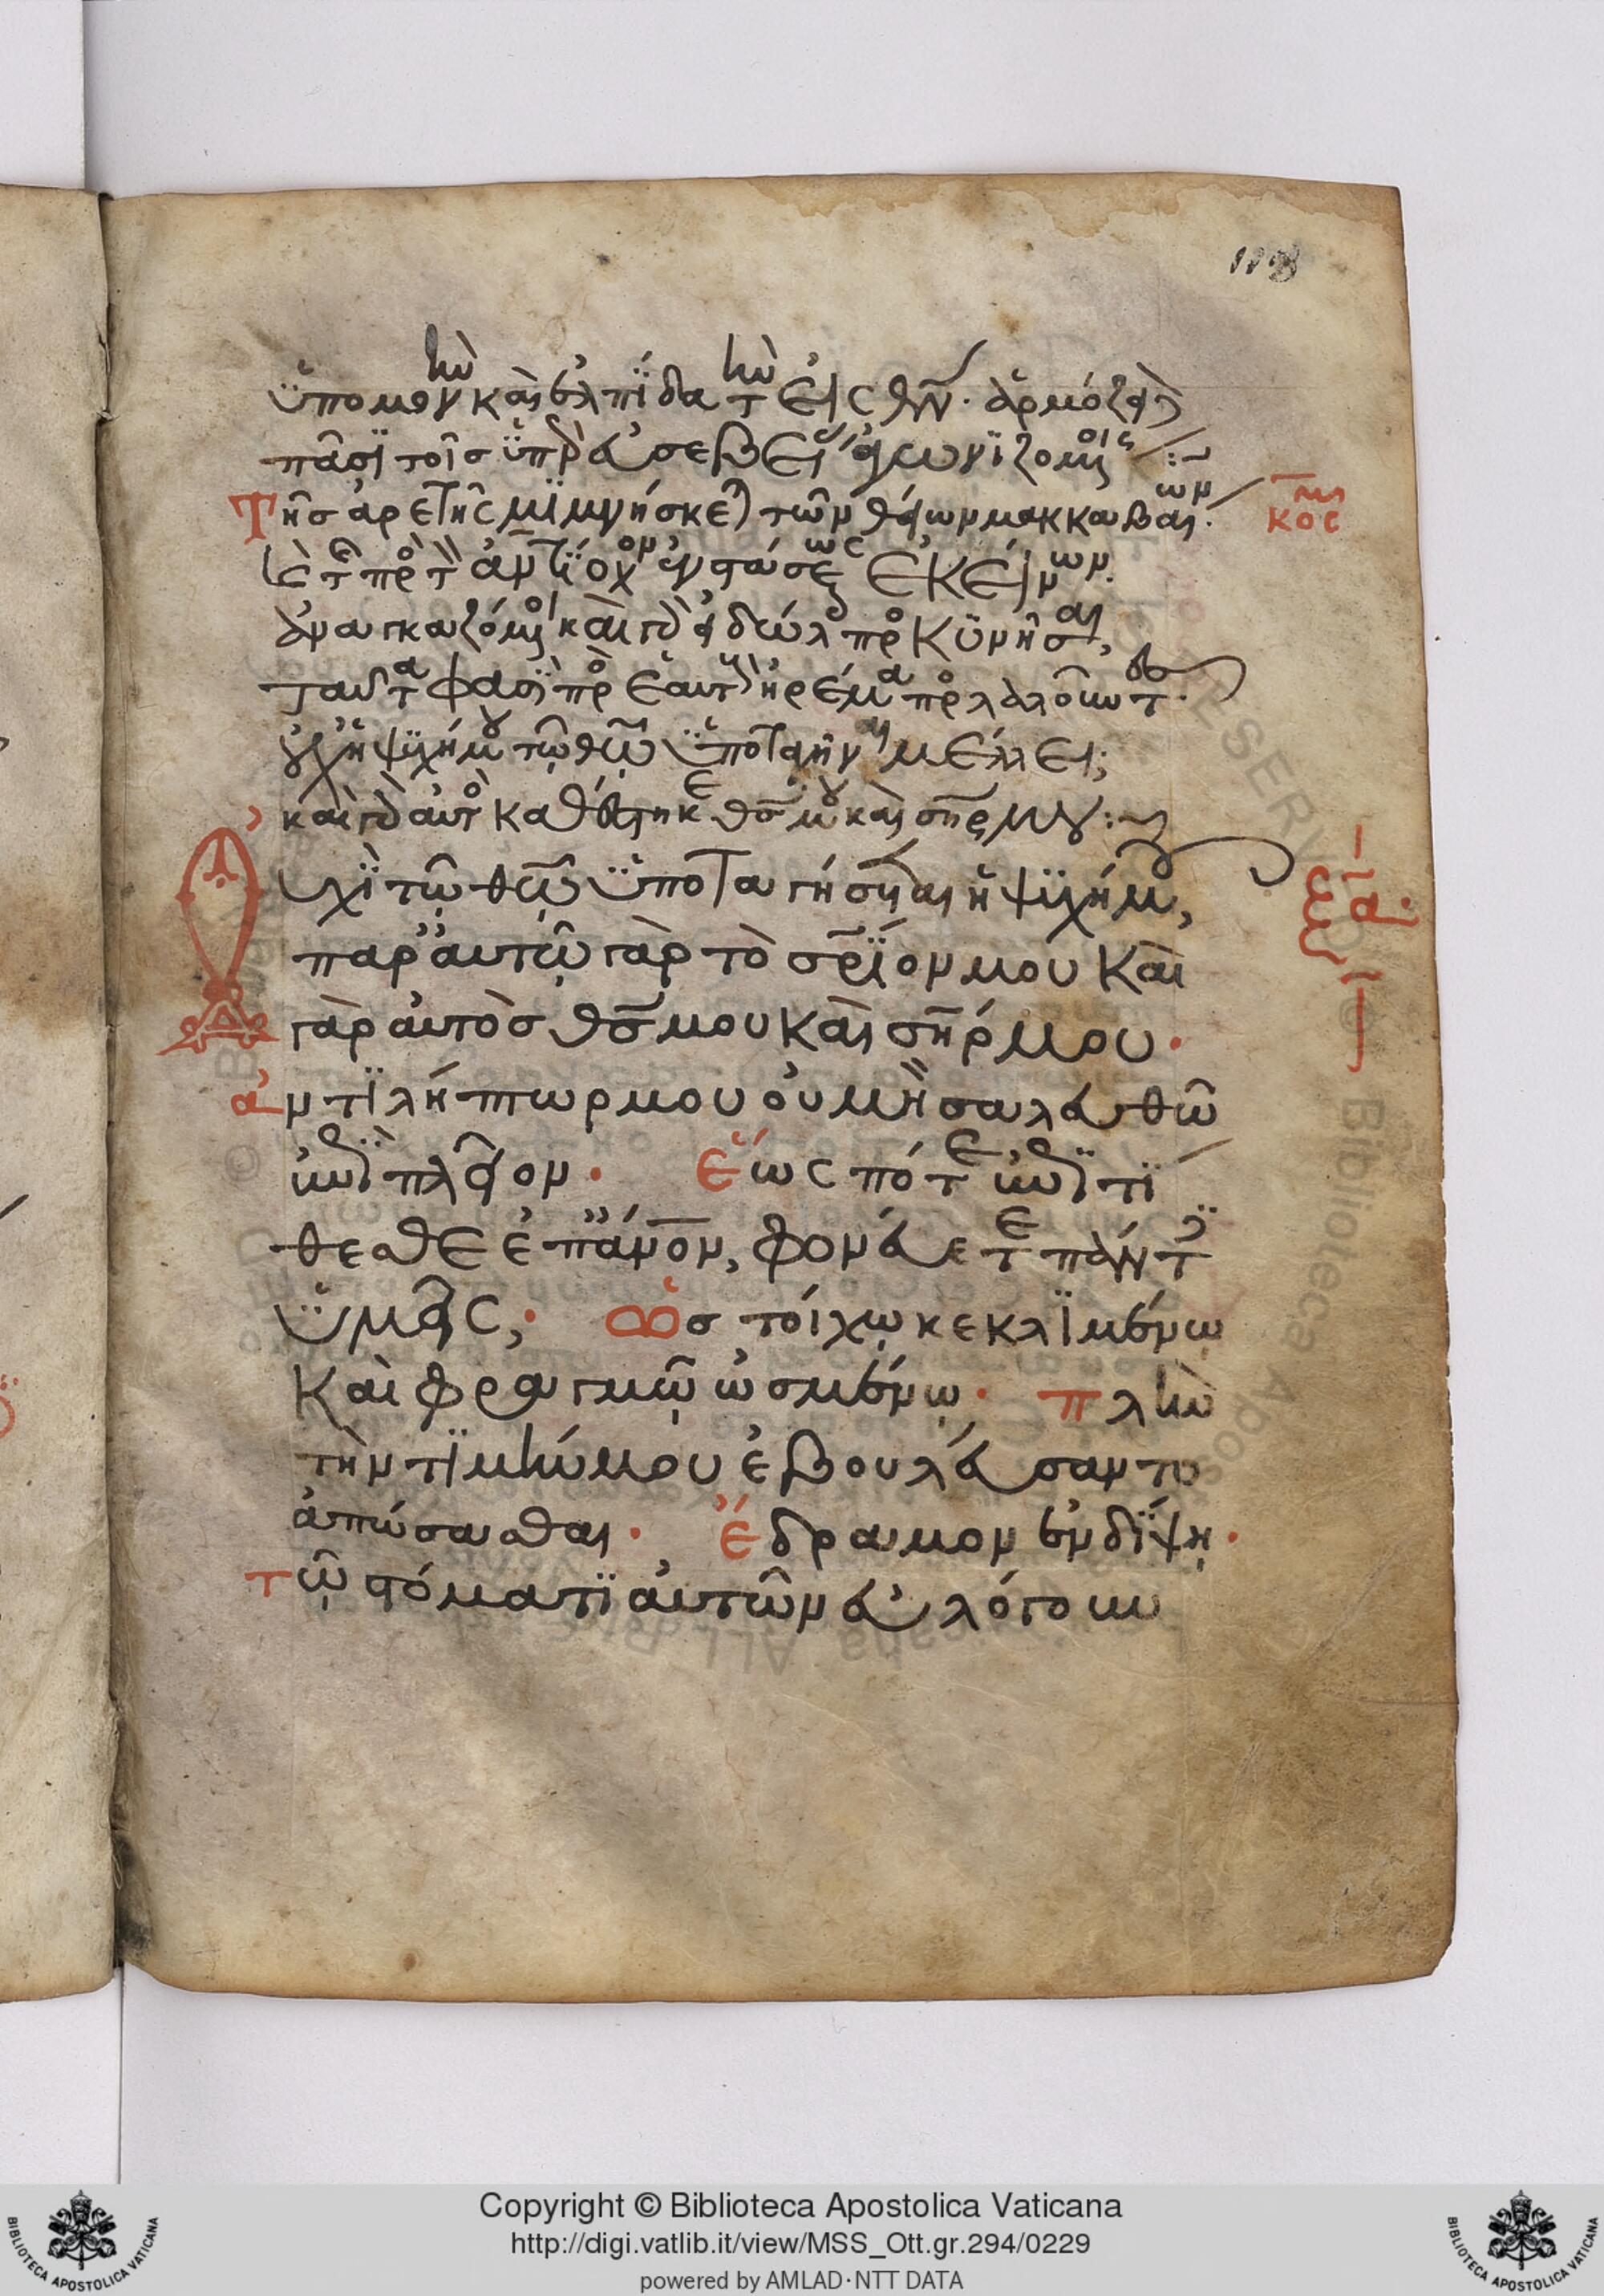 118
ὑπομονὴν καὶ ἐλπίδα τὴν εἰς θν. ἁρμόζει
πᾶσϊ τοῖσ ὑπὲρ εὐσεβεί ἀγωνϊζομένοις :~
Τῆσ ἀρετῆς μϊμνήσκει τῶν θείων μακκαβαίων.
κος
τε πρὸς τὸν ἀντίοχον ἐνστάσεως ἐκείνων.
ἀναγκαζόμενοι καὶ γὰρ εἰδώλ προσκϋνῆσαι,
ταῦτα φασὶ πρὸς ἑαυτ ἠρέμα προσλαλοῦντ.
οὐχὶ ἡ ψϋχή μου τῶ θῶ ὑποταγῆν μέλλει;
καὶ γὰρ αὐτὸς καθέστηκε θσ μου καὶ σηρ μου :~
Οὐχὶ τῶ θῶ ὑποταγήσεται ἡ ψϋχή μου,
ξα.
παρ' αὐτῶ γὰρ τὸ σρϊον μου καὶ
γὰρ αὐτὸσ θσ μου καὶ σηρ μου·
ἀντϊλήπτωρ μου οὐ μὴ σαλευθῶ
ἐπὶ πλεῖον· Ἕως πότε ἐπιτϊ
θεσθε ἐπ' ἄνον, φονεύετε πάντες
ὑμεῖς,· Ὡσ τοίχω κεκλϊμένω
καὶ φραγμῶ ὠσμένω· πλὴν
τὴν τϊμήν μου ἐβουλεύσαντο
ἀπώσασθαι· Ἔδραμον ἐν δίψη·
τῶ στόματϊ αὐτῶν εὐλόγουν
Copyright © Biblioteca Apostolica Vaticana
http://digi.vatlib.it/view/MSS_Ott.gr.294/0229
powered by AMLAD·NTT DATA
BIBLIOTECA APOSTOLICA VATICANA
BIBLIOTECA APOSTOLICA VATICANA